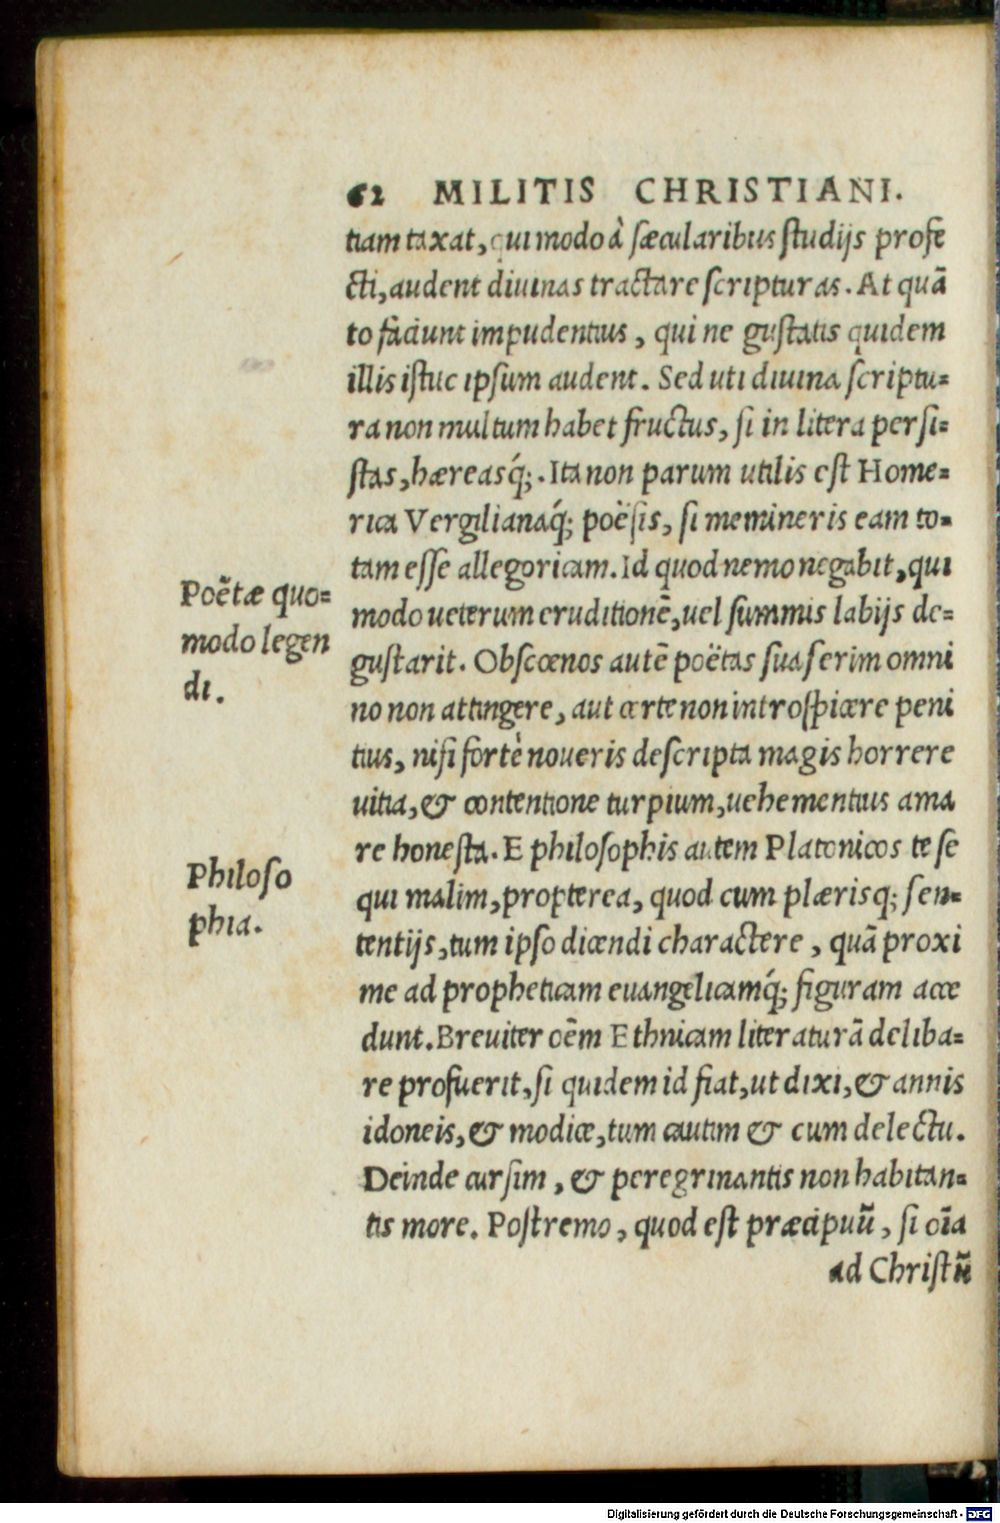 62 MILITIS CHRISTIANI.
tiam taxat, qui modo à sæcularibus studijs profe
cti, audent diuinas tractare scripturas. At quā
to faciunt impudentius, qui ne gustatis quidem
illis istuc ipsum audent. Sed uti diuina scriptu=
ra non multum habet fructus, si in litera persi=
stas, hæreasq́;. Ita non parum utilis est Home=
rica Vergilianaq́; poësis, si memineris eam to=
tam esse allegoricam. Id quod nemo negabit, qui
modo ueterum eruditionē, uel summis labijs de=
gustarit. Obscœnos autē poëtas suaserim omni
no non attingere, aut certe non introspicere peni
tius, nisi fortè noueris descripta magis horrere
uitia, & contentione turpium, uehementius ama
re honesta. E philosophis autem Platonicos te se
qui malim, propterea, quod cum plærisq; sen=
tentijs, tum ipso dicendi charactere, quā proxi
me ad propheticam euangelicamq́; figuram acce
dunt. Breuiter oēm Ethnicam literaturā deliba=
re profuerit, si quidem id fiat, ut dixi, & annis
idoneis, & modice, tum cautim & cum delectu.
Deinde cursim, & peregrinantis non habitan=
tis more. Postremo, quod est præcipuū, si oīa
ad Christū
Poëtæ quo=
modo legen
di.
Philoso
phia.
Digitalisierung gefördert durch die Deutsche Forschungsgemeinschaft - DFG